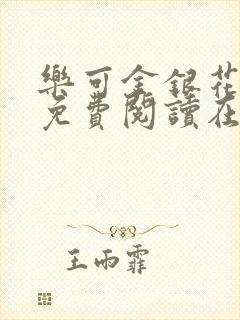 樂可金銀花
免費閱讀在
王雨霏